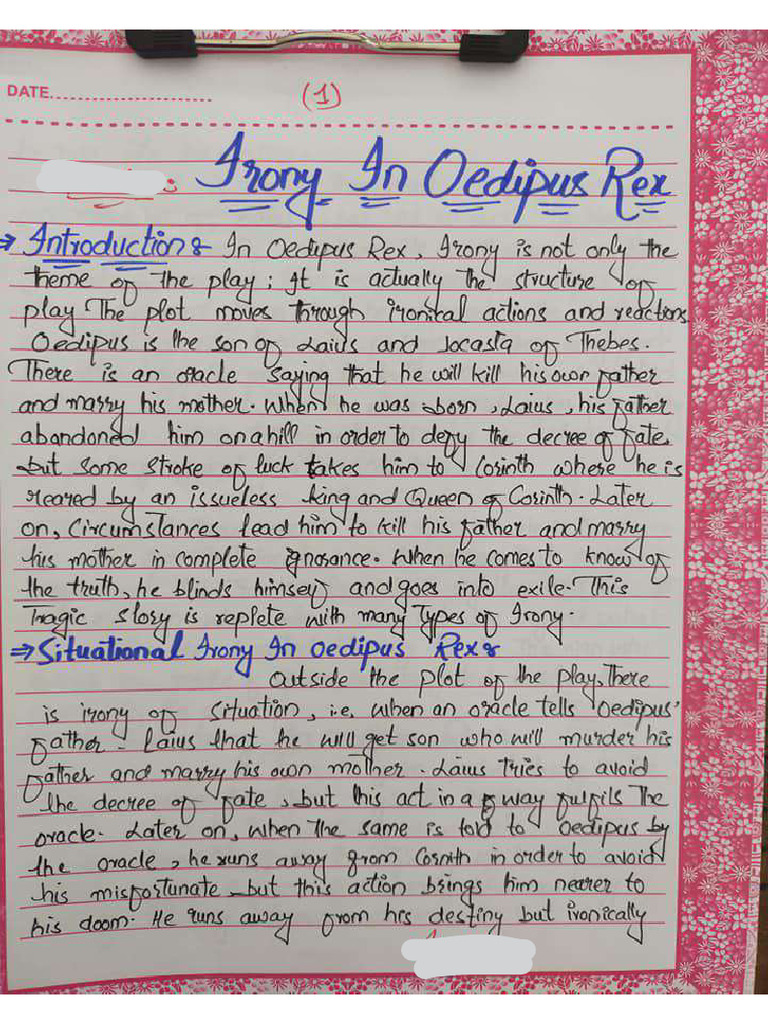 DATE.................................
(1)
Irony In Oedipus Rex
⇒ Introduction :- In Oedipus Rex, Irony is not only the
theme of the play; It is actually the structure of
play The plot moves through ironical actions and reactions
Oedipus is the son of Laius and Jocasta of Thebes.
There is an oracle saying that he will kill his own father
and marry his mother. When he was born, Laius, his father
abandoned him on a hill in order to defy the decree of fate,
but some stroke of luck takes him to Corinth where he is
reared by an issueless king and Queen of Corinth. Later
on, Circumstances lead him to kill his father and marry
his mother in complete ignorance. When he comes to know of
the truth, he blinds himself and goes into exile. This
Tragic story is replete with many Types of Irony.
⇒ Situational Irony In Oedipus Rex :-
Outside the plot of the play, There
is irony of situation, i.e, when an oracle tells Oedipus'
father - Laius that he will get son who will murder his
father and marry his own mother. Laius Tries to avoid
the decree of fate, but this act in a way fulfils The
oracle. Later on, when the same is told to Oedipus by
the oracle, he runs away from Cornith in order to avoid
his misfortunate but this action brings him nearer to
his doom. He runs away from his destiny but ironically